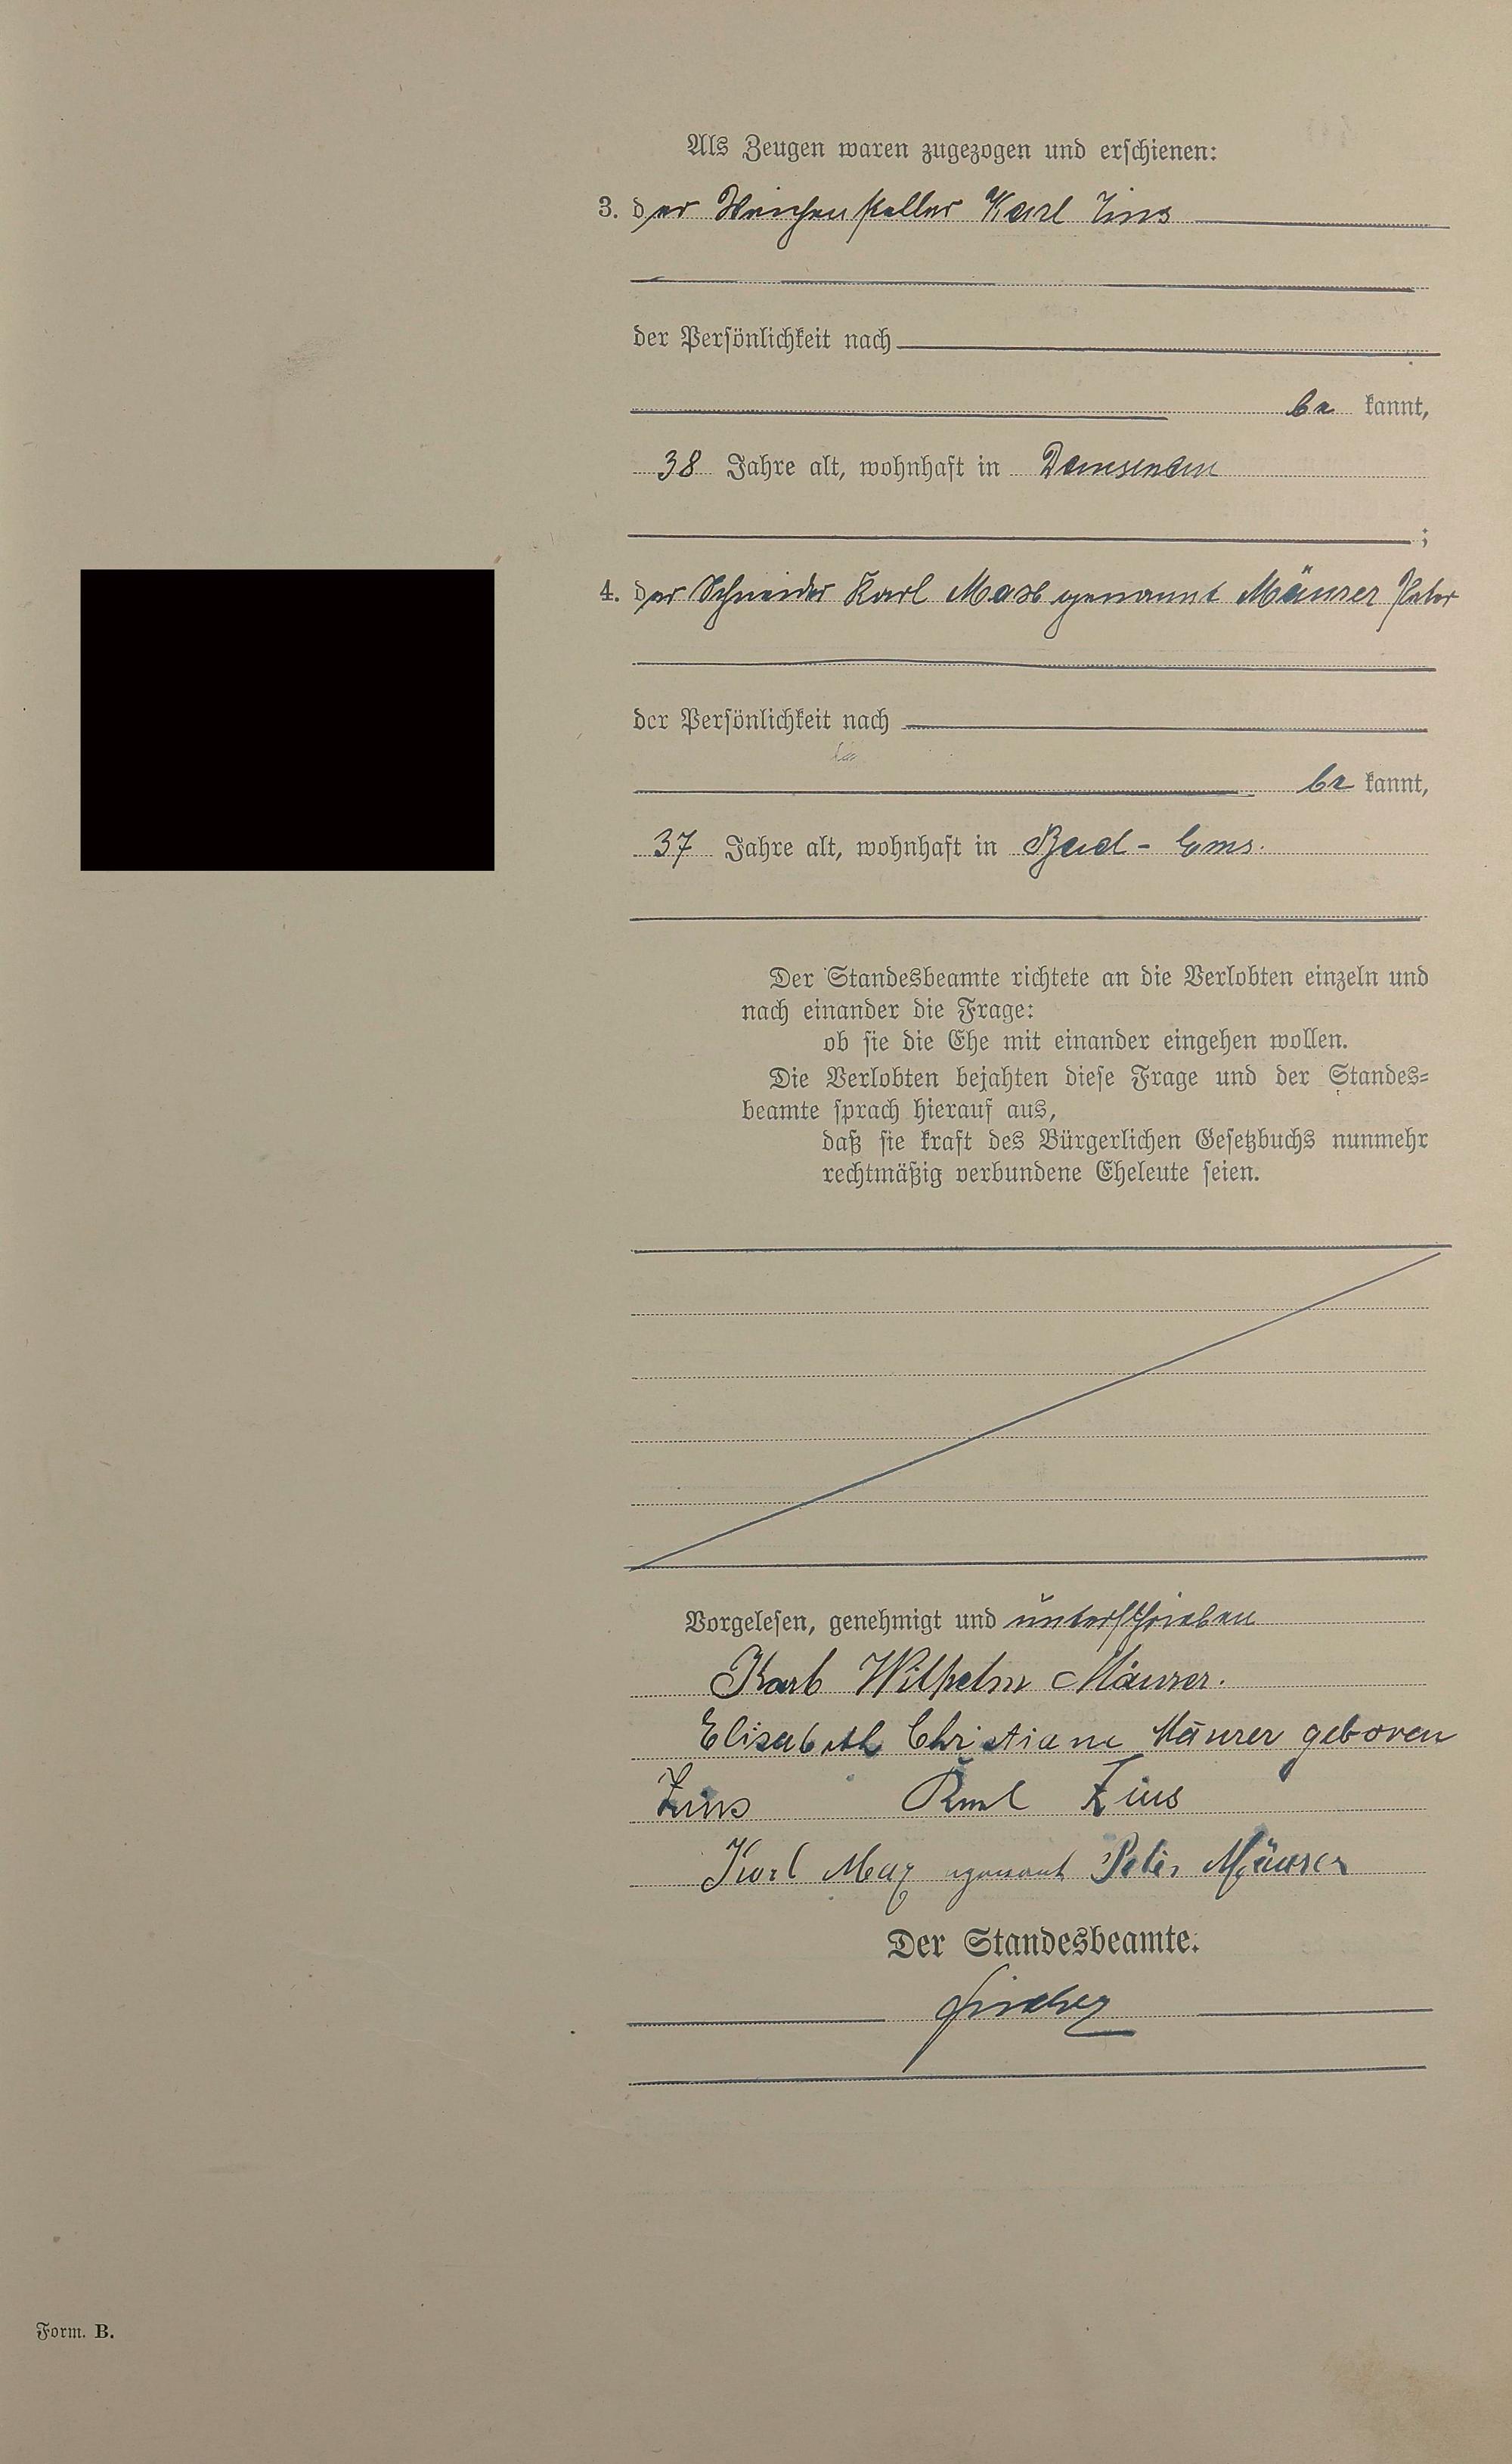 Als Zeugen waren zugezogen und erschienen:
3. der Weichensteller Karl Zins
der Persönlichkeit nach
be kannt,
38 Jahre alt, wohnhaft in Dausenau
;
4. der Schneider Karl Max genannt Mäurer Peter
der Persönlichkeit nach
be kannt,
37 Jahre alt, wohnhaft in Bad-Ems.
Der Standesbeamte richtete an die Verlobten einzeln und
nach einander die Frage:
ob sie die Ehe mit einander eingehen wollen.
Die Verlobten bejahten diese Frage und der Standes=
beamte sprach hierauf aus,
daß sie kraft des Bürgerlichen Gesetzbuchs nunmehr
rechtmäßig verbundene Eheleute seien.
Vorgelesen, genehmigt und unterschrieben
Karl Wilhelm Mäurer.
Elisabeth Christiane Mäurer geboren
Zins Karl Zins
Karl Max genannt Peter Mäurer
Der Standesbeamte.
Form. B.